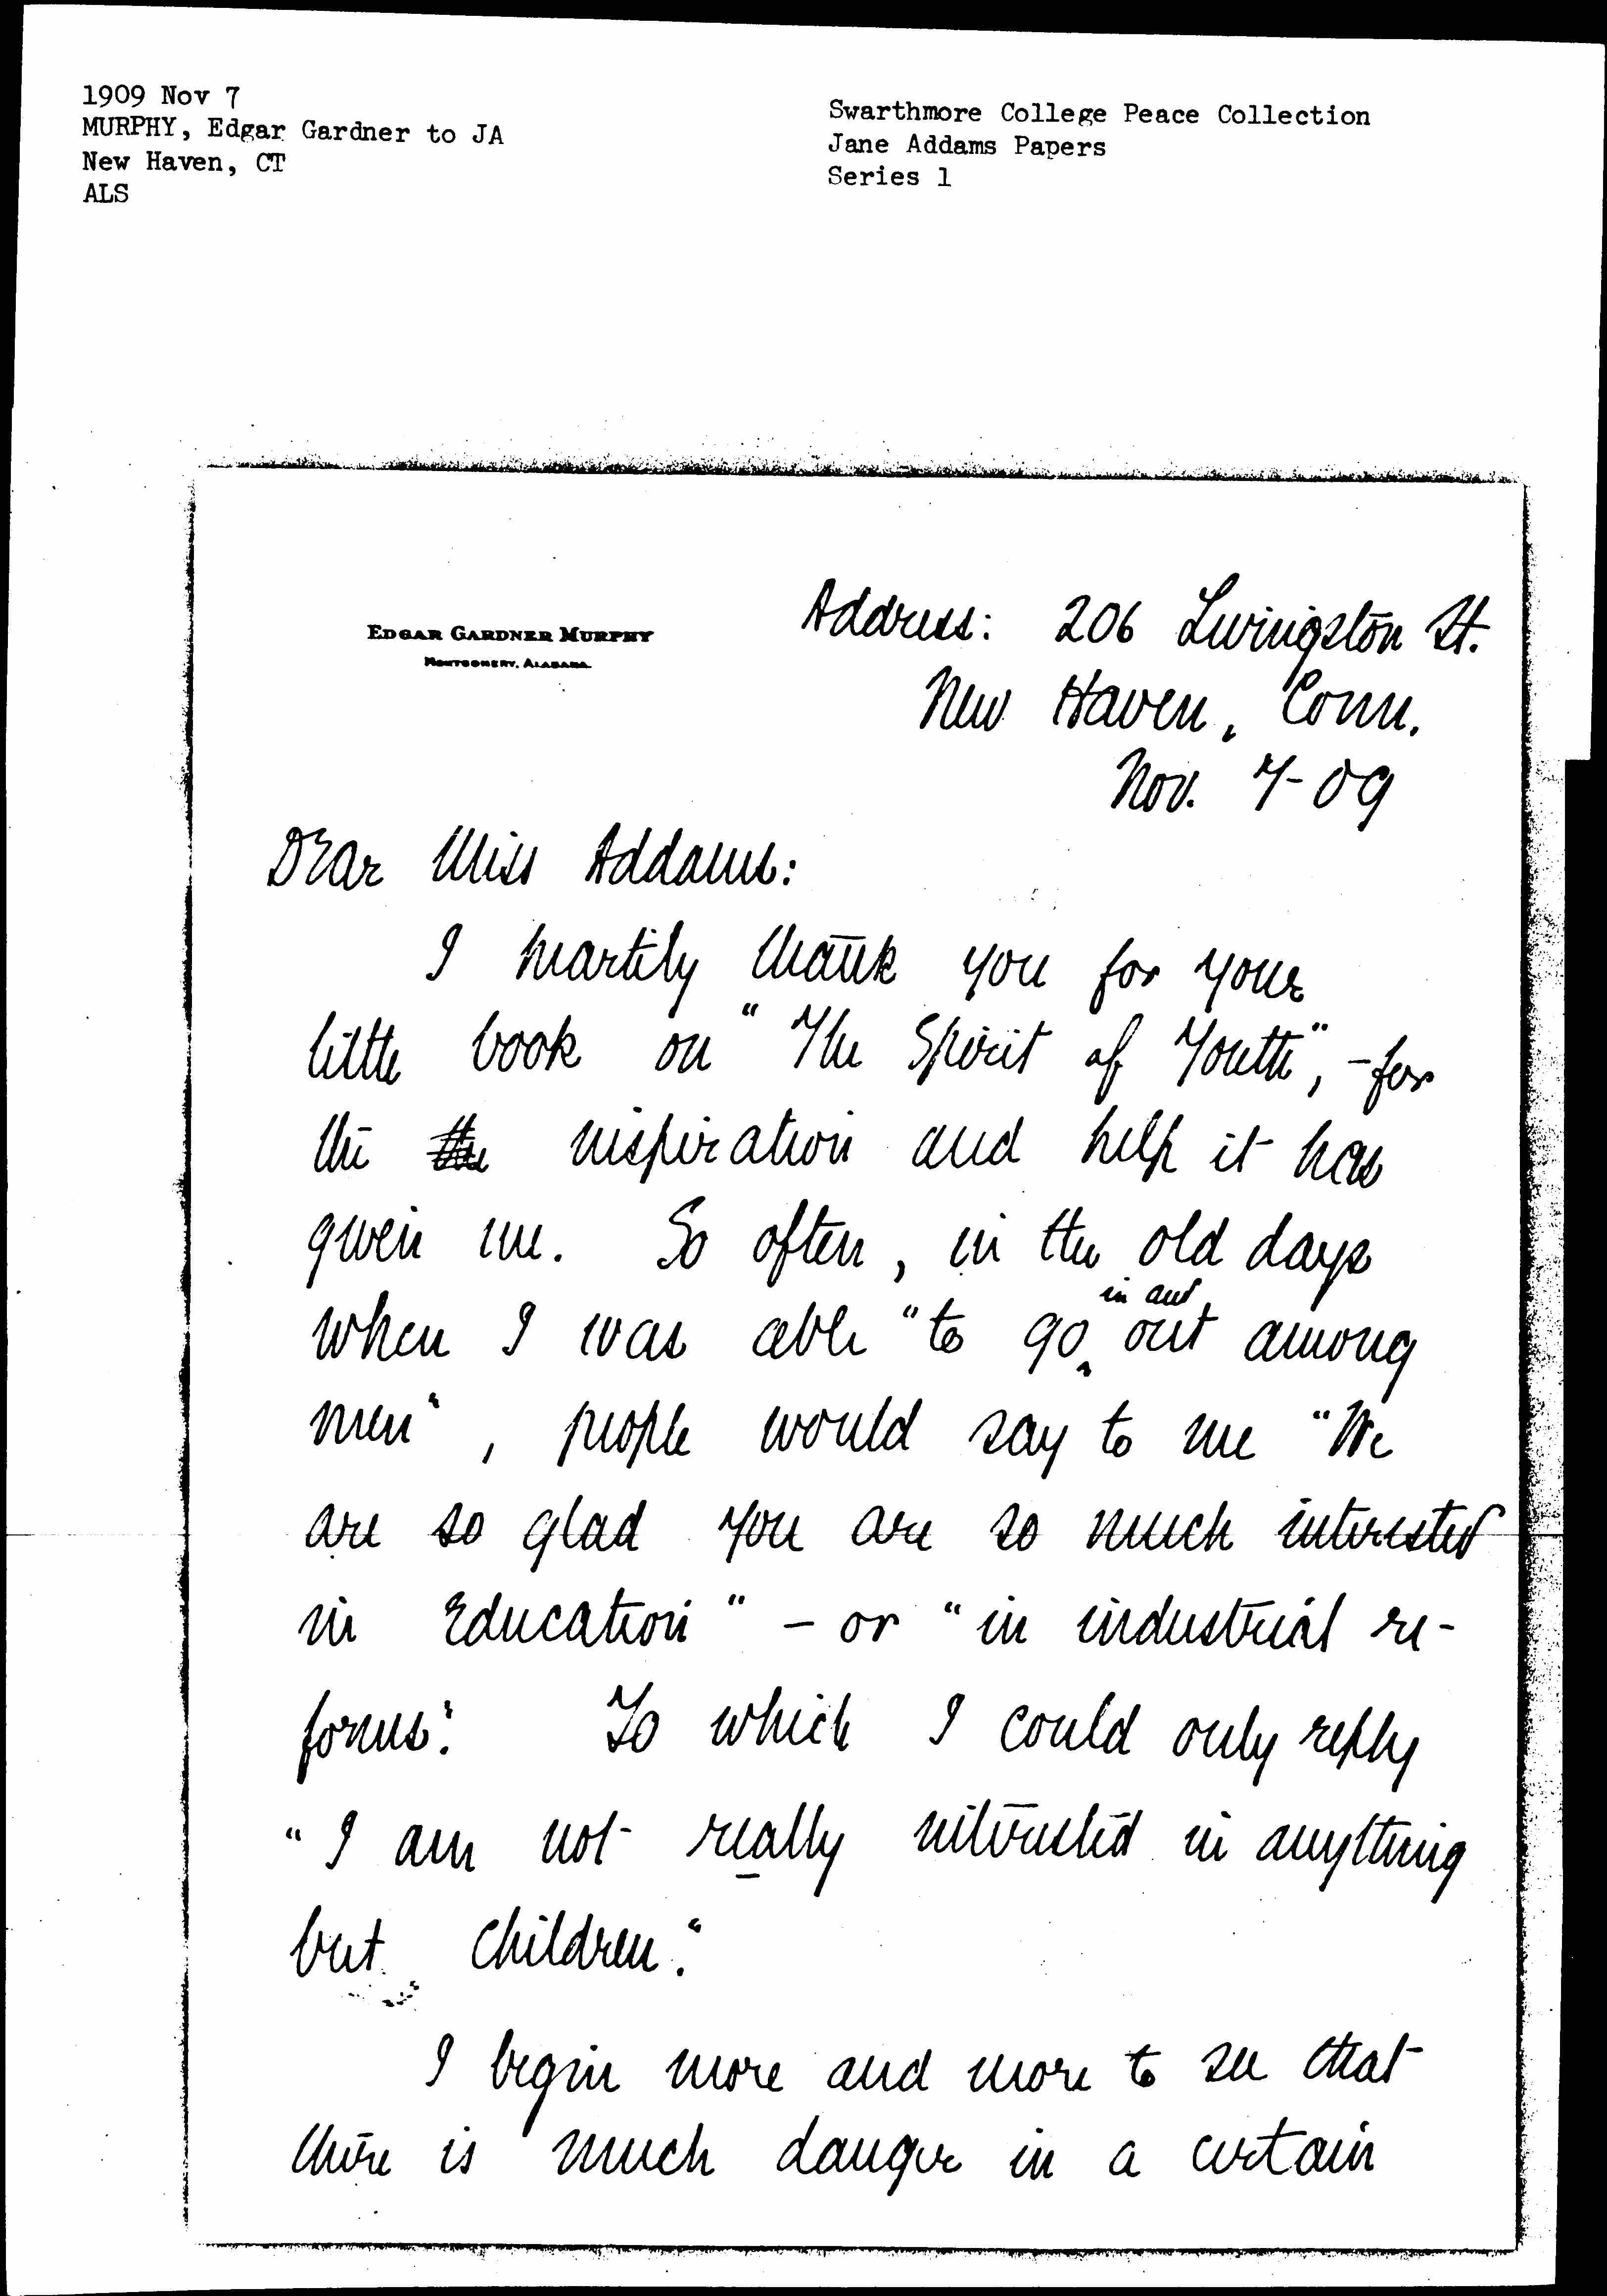 1909 Nov 7
MURPHY, Edgar Gardner to JA
New Haven, CT
ALS
Swarthmore College Peace Collection
Jane Addams Papers
Series 1
EDGAR GARDNER MURPHY
MONTGOMERY, ALABAMA.
Address: 206 Livingston St.
New Haven, Conn.
Nov. 7-09
Dear Miss Addams:
I heartily thank you for your
little book on "The Spirit of Youth", - for
the the inspiration and help it has
given me. So often, in the old days
when I was able "to go in and out among
men", people would say to me "We
are so glad you are so much interested
in Education" - or "in industrial re-
forms". To which I could only reply
"I am not really interested in anything
but children."
I begin more and more to see that
there is much danger in a certain